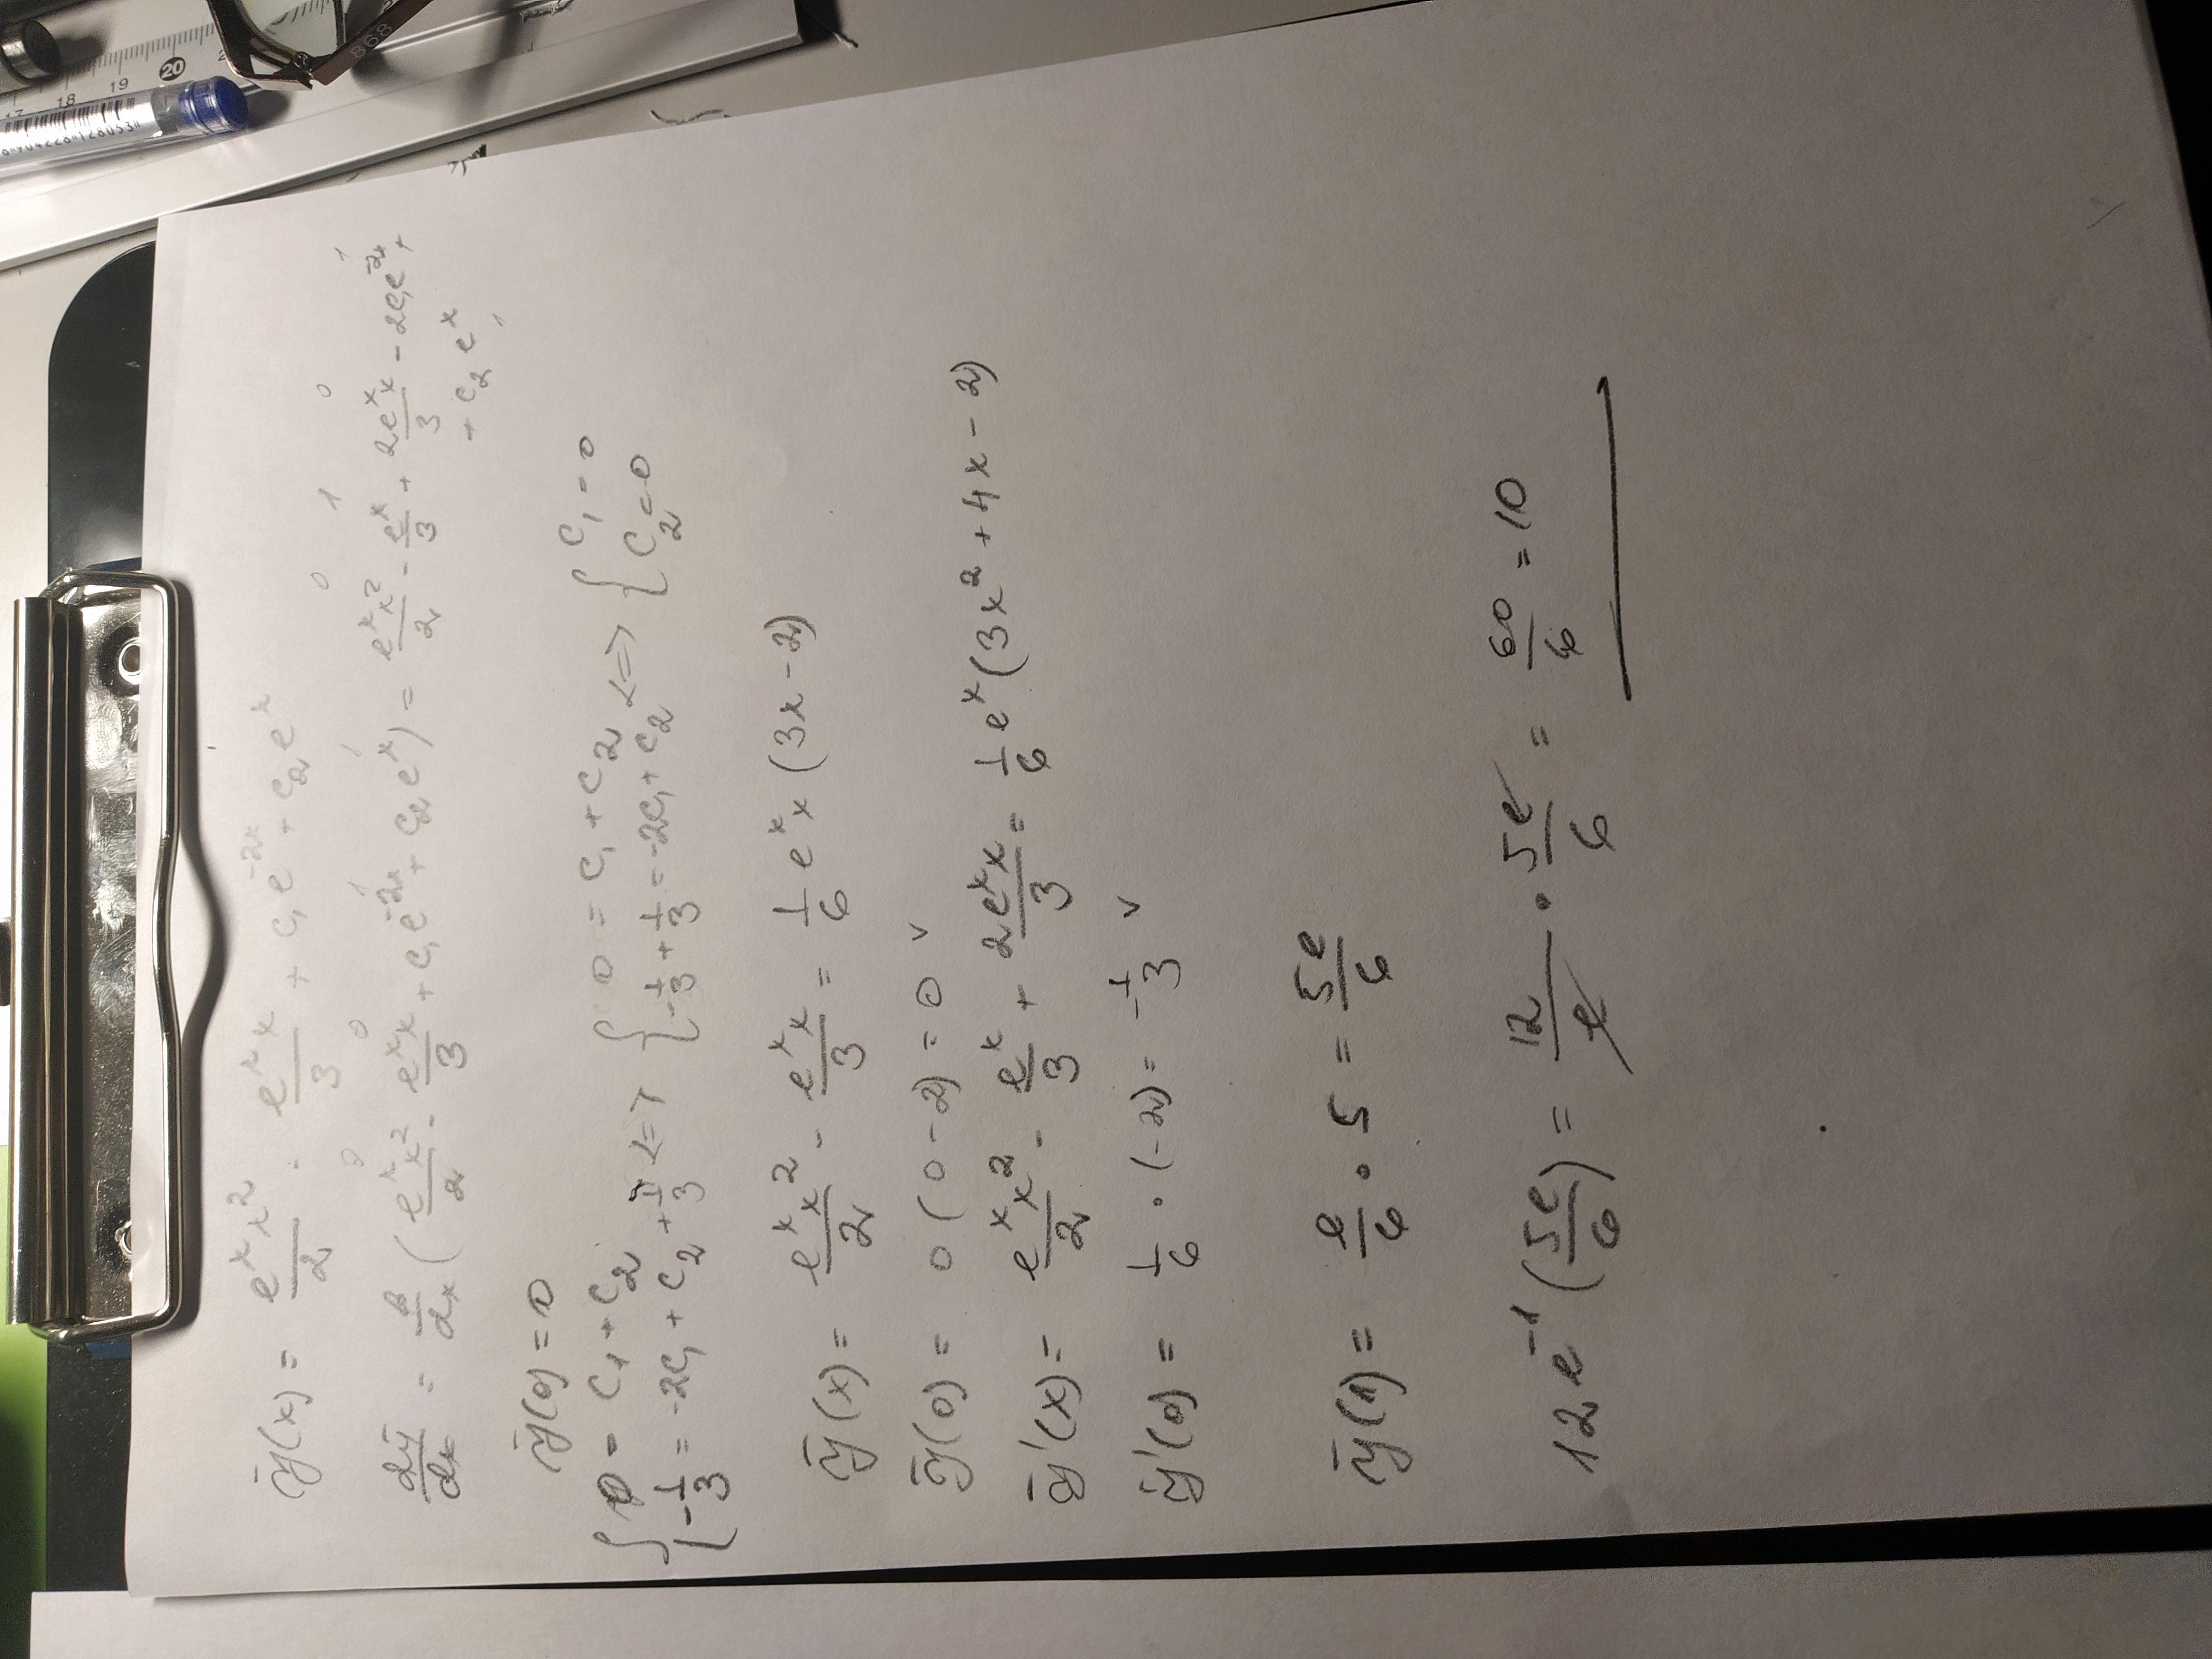 ȳ(x) = eˣx²/2 - eˣx/3 + c₁e⁻²ˣ + c₂eˣ
dȳ/dx = d/dx (eˣx²/2 - eˣx/3 + c₁e⁻²ˣ + c₂eˣ) = eˣx²/2 - eˣ/3 + 2eˣx/3 - 2c₁e⁻²ˣ +
+ c₂eˣ
ȳ(0) = 0
{ 0 = c₁ + c₂
{ -1/3 = -2c₁ + c₂ + 1/3 <=> { 0 = c₁ + c₂
{ -1/3 + 1/3 = -2c₁ + c₂ <=> { c₁ = 0
{ c₂ = 0
ȳ(x) = eˣx²/2 - eˣx/3 = 1/6 eˣx (3x - 2)
ȳ(0) = 0 (0 - 2) = 0 v
ȳ'(x) = eˣx²/2 - eˣ/3 + 2eˣx/3 = 1/6 eˣ (3x² + 4x - 2)
ȳ'(0) = 1/6 · (-2) = -1/3 v
ȳ(1) = e/6 · 5 = 5e/6
12e⁻¹ (5e/6) = 12/e · 5e/6 = 60/6 = 10
17 18 19 20
868